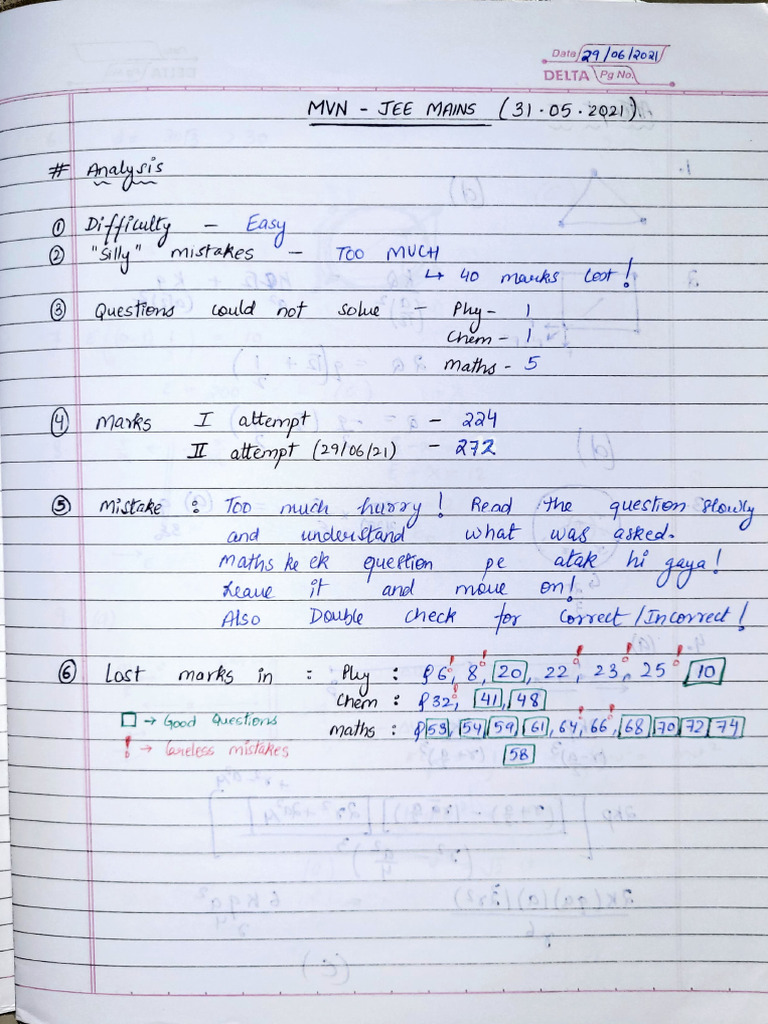 Date 29/06/2021
DELTA Pg No.
MVN - JEE MAINS (31.05.2021)
# Analysis
① Difficulty - Easy
② "Silly" mistakes - TOO MUCH
↳ 40 marks lost!
③ Questions could not solve - Phy - 1
Chem - 1
Maths - 5
④ Marks I attempt - 224
II attempt (29/06/21) - 272
⑤ Mistake : Too much hurry! Read the question slowly
and understand what was asked.
Maths ke ek question pe atak hi gaya!
Leave it and move on!
Also Double check for Correct/Incorrect!
⑥ Lost marks in : Phy : 6!, 8!, 20, 22!, 23!, 25! 10
Chem : 32!, 41, 48
□ → Good Questions
Maths : 53, 54, 59, 61, 64!, 66!, 68, 70, 72, 74
! → Careless mistakes
58